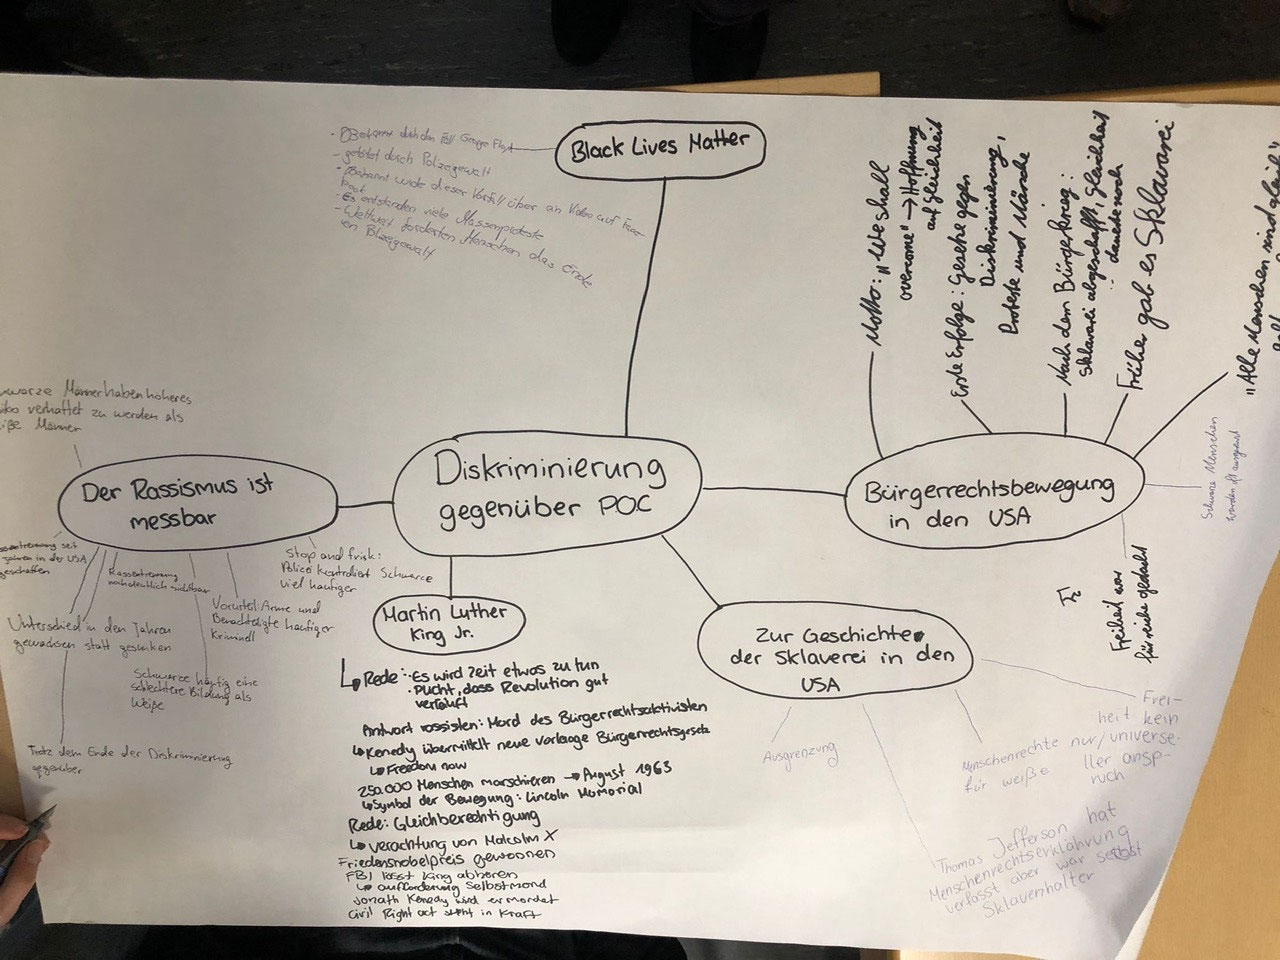 Black Lives Matter
- Bekannt durch den Fall George Floyd
- getötet durch Polizeigewalt
- Bekannt wurde dieser Vorfall über ein Video auf
- Es entstanden viele Massenproteste
- Weltweit forderten Menschen das Ende
von Polizeigewalt
Motto: „We shall
overcome" → Hoffnung
auf Gleichheit
Erste Erfolge: Gesetze gegen
Diskriminierung,
Proteste und Märsche
Nach dem Bürgerkrieg:
Sklaverei abgeschafft, Gleichheit
dauerte noch
Früher gab es Sklaverei
"Alle Menschen sind gleich"
Schwarze Menschen
werden oft ausgegrenzt
Bürgerrechtsbewegung
in den USA
Freiheit war
für reiche gedacht
Diskriminierung
gegenüber POC
Männer haben höheres
verhaftet zu werden als
Männer
Der Rassismus ist
messbar
seit
in der USA
Rassentrennung
nachdenklich sichtbar
Stop and frisk:
Polizei kontrolliert Schwarze
viel häufiger
Vorurteil: Arme und
Benachteiligte häufiger
Kriminell
Unterschied in den Jahren
gewachsen statt gesunken
Schwarze häufig eine
schlechtere Bildung als
Weiße
Trotz dem Ende der Diskriminierung
gegenüber
Martin Luther
King Jr.
↳ Rede: · Es wird Zeit etwas zu tun
· Pucht, dass Revolution gut
verläuft
Antwort rassisten: Mord des Bürgerrechtsaktivisten
↳ Kenedy übermittelt neue Vorlage Bürgerrechtsgesetz
↳ Freedom now
250.000 Menschen marschieren → August 1963
↳ Symbol der Bewegung: Lincoln Memorial
Rede: Gleichberechtigung
↳ verachtung von Malcolm X
Friedensnobelpreis gewonnen
FBI lässt King abhören
↳ aufforderung Selbstmord
Jonath Kenedy wird ermordet
Civil Right act steht in Kraft
Zur Geschichte
der Sklaverei in den
USA
Ausgrenzung
Menschenrechte nur
für weiße
Frei-
heit kein
universe-
ller ansp-
ruch
Thomas Jefferson hat
Menschenrechtserklährung
verfasst aber war selbst
Sklavenhalter